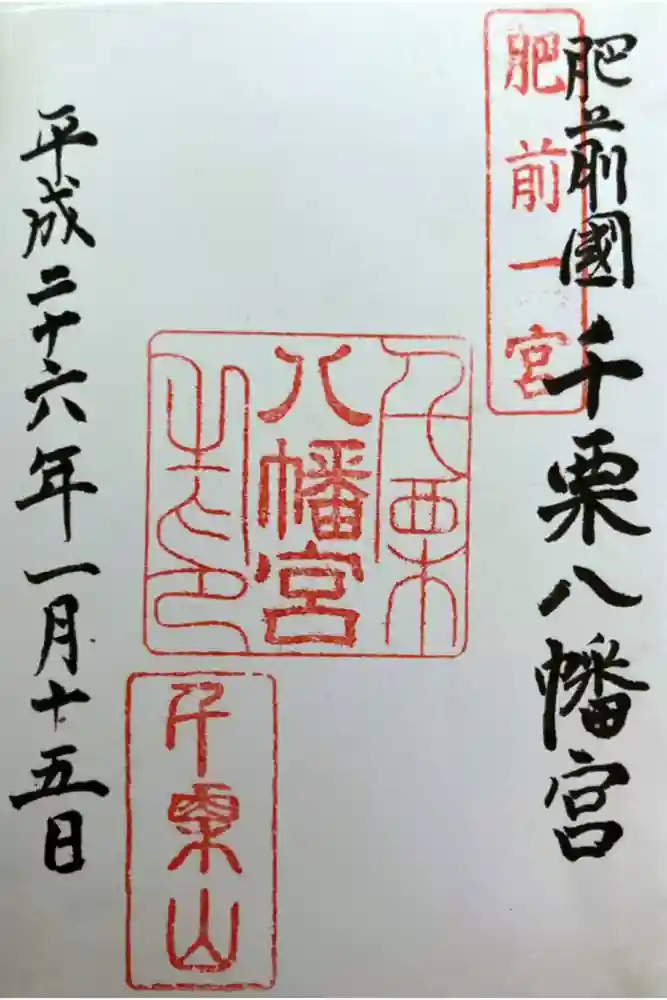 肥前國千栗八幡宮
肥前一宮
千栗
八幡宮
之印
千栗山
平成二十六年一月十五日